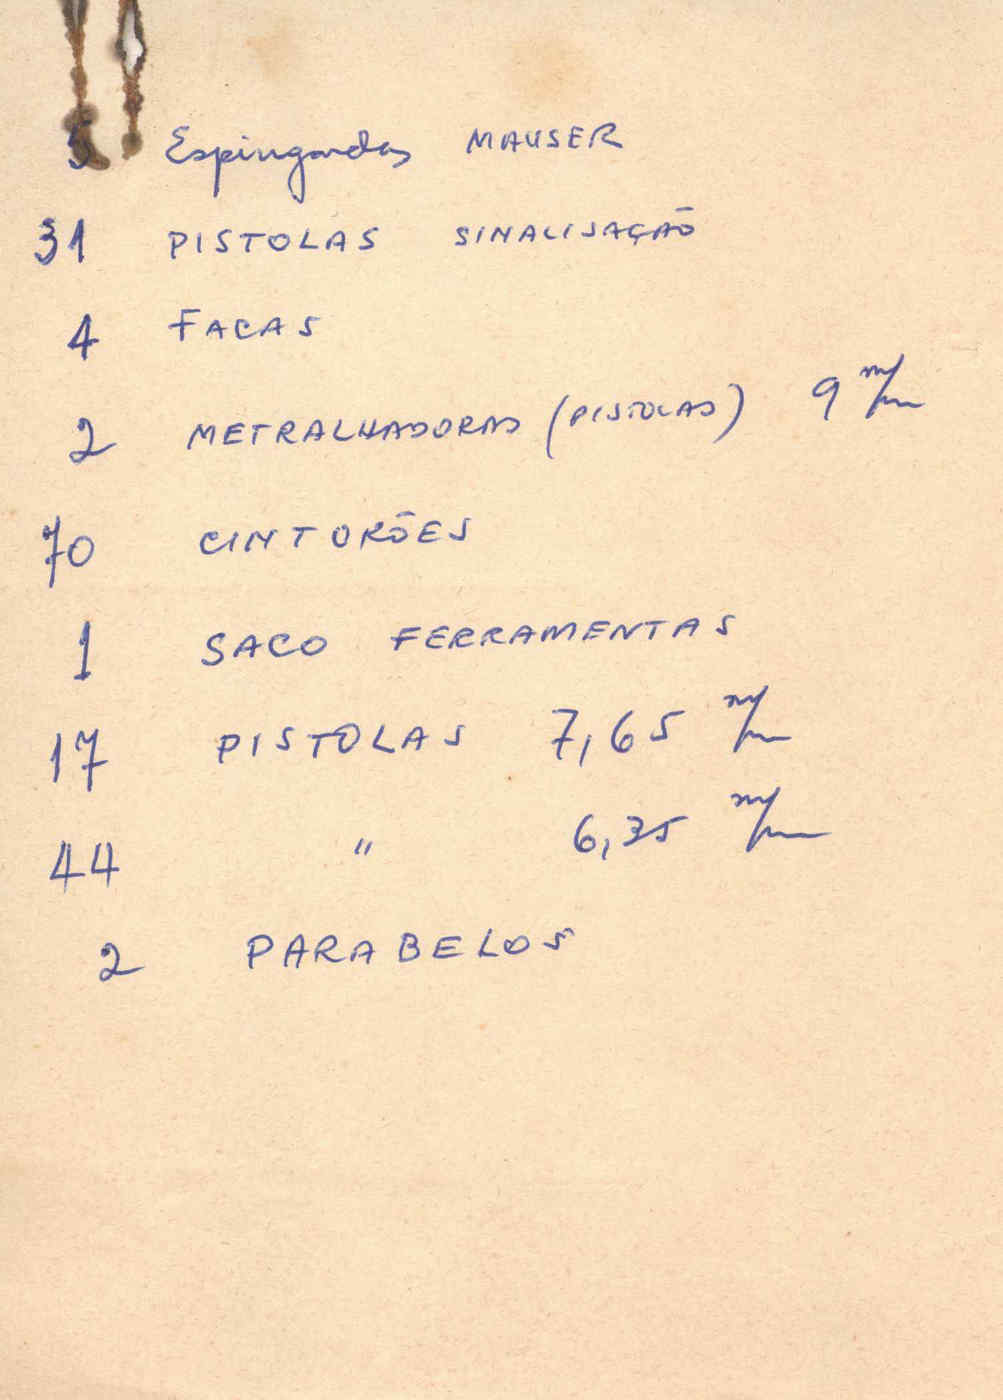 5 Espingardas MAUSER
31 PISTOLAS SINALISAÇÃO
4 FACAS
2 METRALHADORAS (PISTOLAS) 9 m/m
70 CINTORÕES
1 SACO FERRAMENTAS
17 PISTOLAS 7,65 m/m
44 " 6,35 m/m
2 PARABELOS